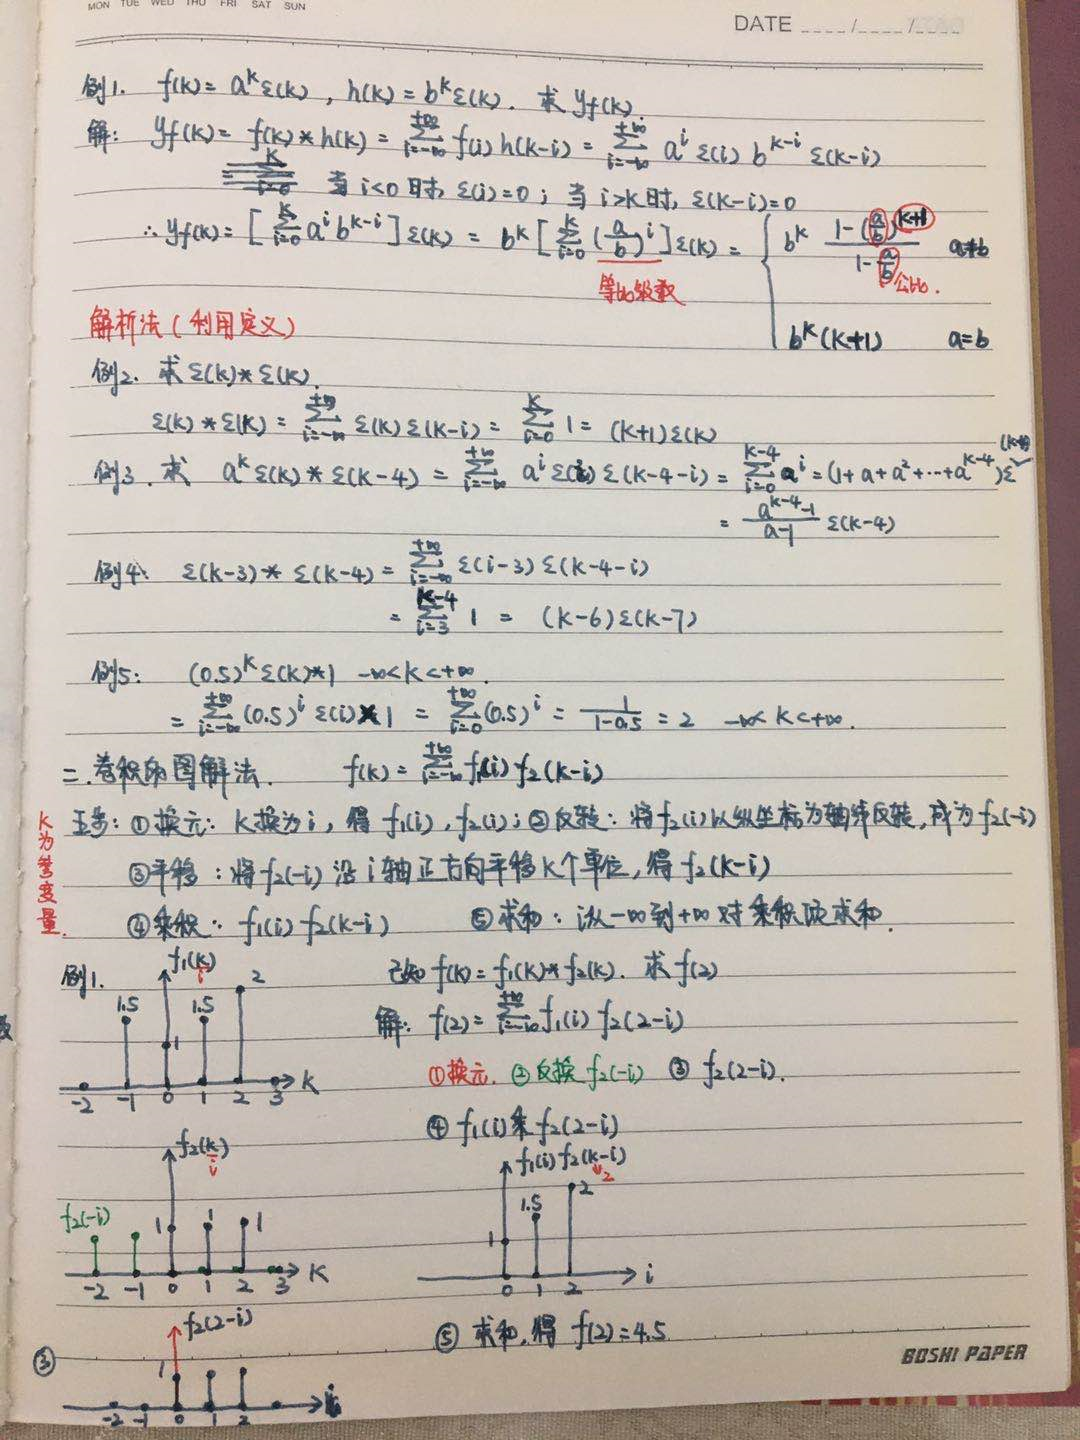 MON TUE WED THU FRI SAT SUN
DATE ____/____/____
例1. f(k)=aᵏε(k), h(k)=bᵏε(k). 求 yf(k).
解: yf(k)= f(k)*h(k) = Σ_{i=-∞}^{+∞} f(i) h(k-i) = Σ_{i=-∞}^{+∞} aⁱ ε(i) b^{k-i} ε(k-i)
当 i<0 时, ε(i)=0; 当 i>k 时, ε(k-i)=0
∴ yf(k)= [Σ_{i=0}^{k} aⁱ b^{k-i}] ε(k) = bᵏ [Σ_{i=0}^{k} (a/b)ⁱ] ε(k) = { bᵏ (1-(a/b)^{k+1})/(1-a/b) a≠b
等比级数 公比.
bᵏ(k+1) a=b
解析法(利用定义)
例2. 求 ε(k)*ε(k).
ε(k)*ε(k)= Σ_{i=-∞}^{+∞} ε(k) ε(k-i) = Σ_{i=0}^{k} 1 = (k+1)ε(k)
例3. 求 aᵏε(k) * ε(k-4) = Σ_{i=-∞}^{+∞} aⁱ ε(i) ε(k-4-i) = Σ_{i=0}^{k-4} aⁱ = (1+a+a²+…+a^{k-4})ε(k-4)
= (a^{k-4}-1)/(a-1) ε(k-4)
例4: ε(k-3)* ε(k-4) = Σ_{i=-∞}^{+∞} ε(i-3) ε(k-4-i)
= Σ_{i=3}^{k-4} 1 = (k-6)ε(k-7)
例5: (0.5)ᵏ ε(k)*1 -∞<k<+∞.
= Σ_{i=-∞}^{+∞} (0.5)ⁱ ε(i)×1 = Σ_{i=0}^{+∞} (0.5)ⁱ = 1/(1-0.5) = 2 -∞<k<+∞.
二. 卷积的图解法. f(k) = Σ_{i=-∞}^{+∞} f₁(i) f₂(k-i)
五步: ①换元: k换为i, 得 f₁(i), f₂(i); ②反转: 将f₂(i)以纵坐标为轴线反转, 成为f₂(-i)
③平移: 将f₂(-i) 沿 i轴正方向平移k个单位, 得 f₂(k-i)
④乘积: f₁(i) f₂(k-i) ⑤求和: i从-∞到+∞对乘积项求和.
k为参变量.
例1. f₁(k) i 已知 f(k)=f₁(k)*f₂(k). 求 f(2)
1.5 1 1.5 2
解: f(2)= Σ_{i=-∞}^{+∞} f₁(i) f₂(2-i)
-2 -1 0 1 2 3 k
①换元. ②反换 f₂(-i) ③ f₂(2-i).
④ f₁(i)乘f₂(2-i)
f₂(k) i
f₂(-i) 1 1 1
-2 -1 0 1 2 3 k
f₁(i) f₂(k-i) 2
1 1.5 2
0 1 2 i
f₂(2-i)
⑤ 求和, 得 f(2)=4.5
③ 1
-2 -1 0 1 2 i
BOSHI PAPER